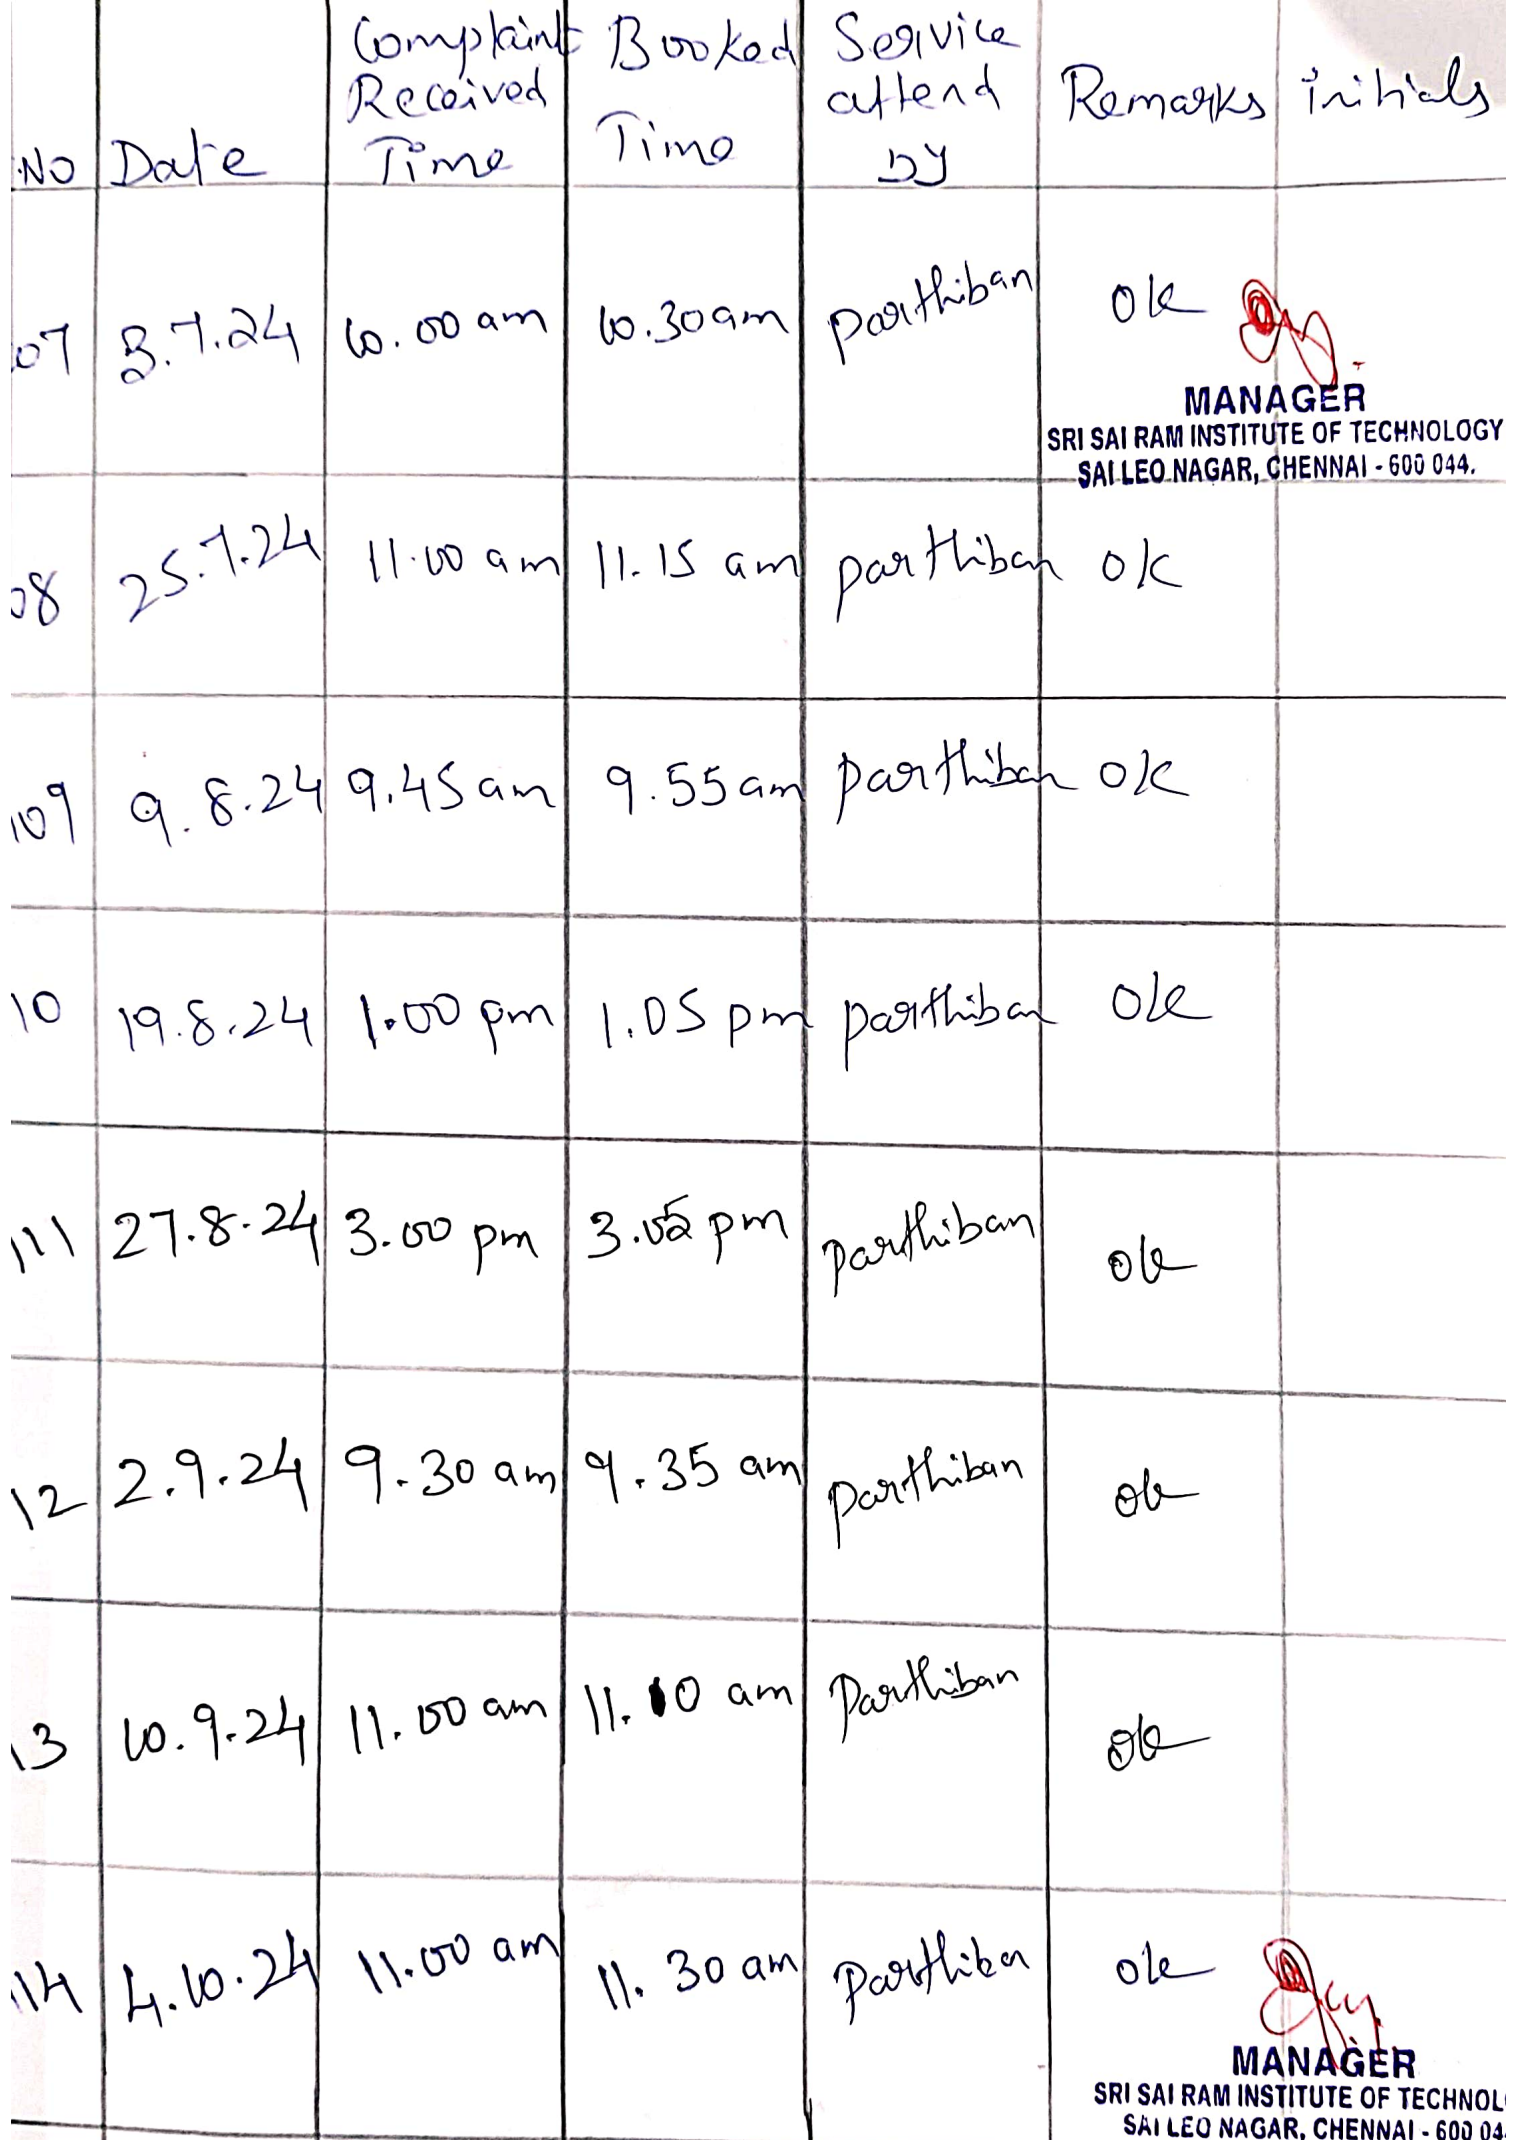 Complaint Booked Service
Received attend Remarks initials
.No Date Time Time by
07 3.7.24 10.00 am 10.30am parthiban ok
MANAGER
SRI SAI RAM INSTITUTE OF TECHNOLOGY
SAI LEO NAGAR, CHENNAI - 600 044.
08 25.7.24 11.00 am 11.15 am parthiban ok
109 9.8.24 9.45 am 9.55 am parthiban ok
10 19.8.24 1.00 pm 1.05 pm parthiban ok
111 27.8.24 3.00 pm 3.05 pm parthiban ok
12 2.9.24 9.30 am 9.35 am parthiban ok
13 10.9.24 11.00 am 11.10 am Parthiban ok
114 4.10.24 11.00 am 11.30 am parthiban ok
MANAGER
SRI SAI RAM INSTITUTE OF TECHNOL
SAI LEO NAGAR, CHENNAI - 600 04